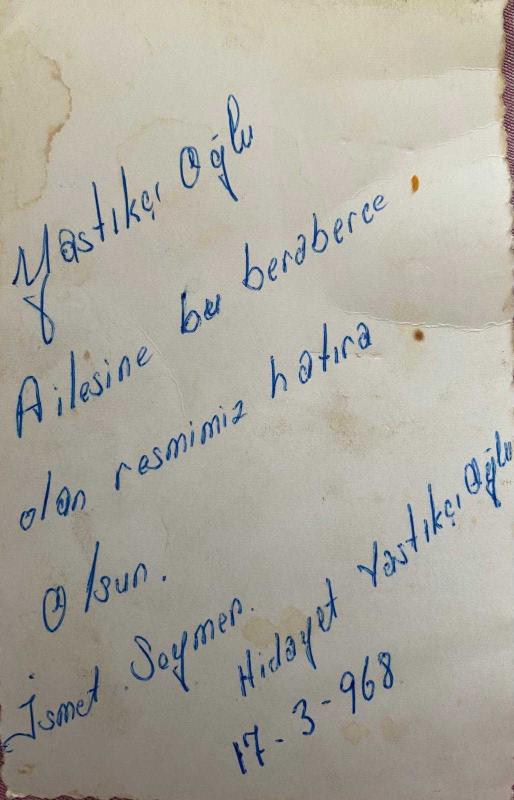 Yastıkçı Oğlu
Ailesine bu beraberce
olan resmimiz hatıra
Olsun.
İsmet Soymen. Hidayet Yastıkçı Oğlu
17-3-968